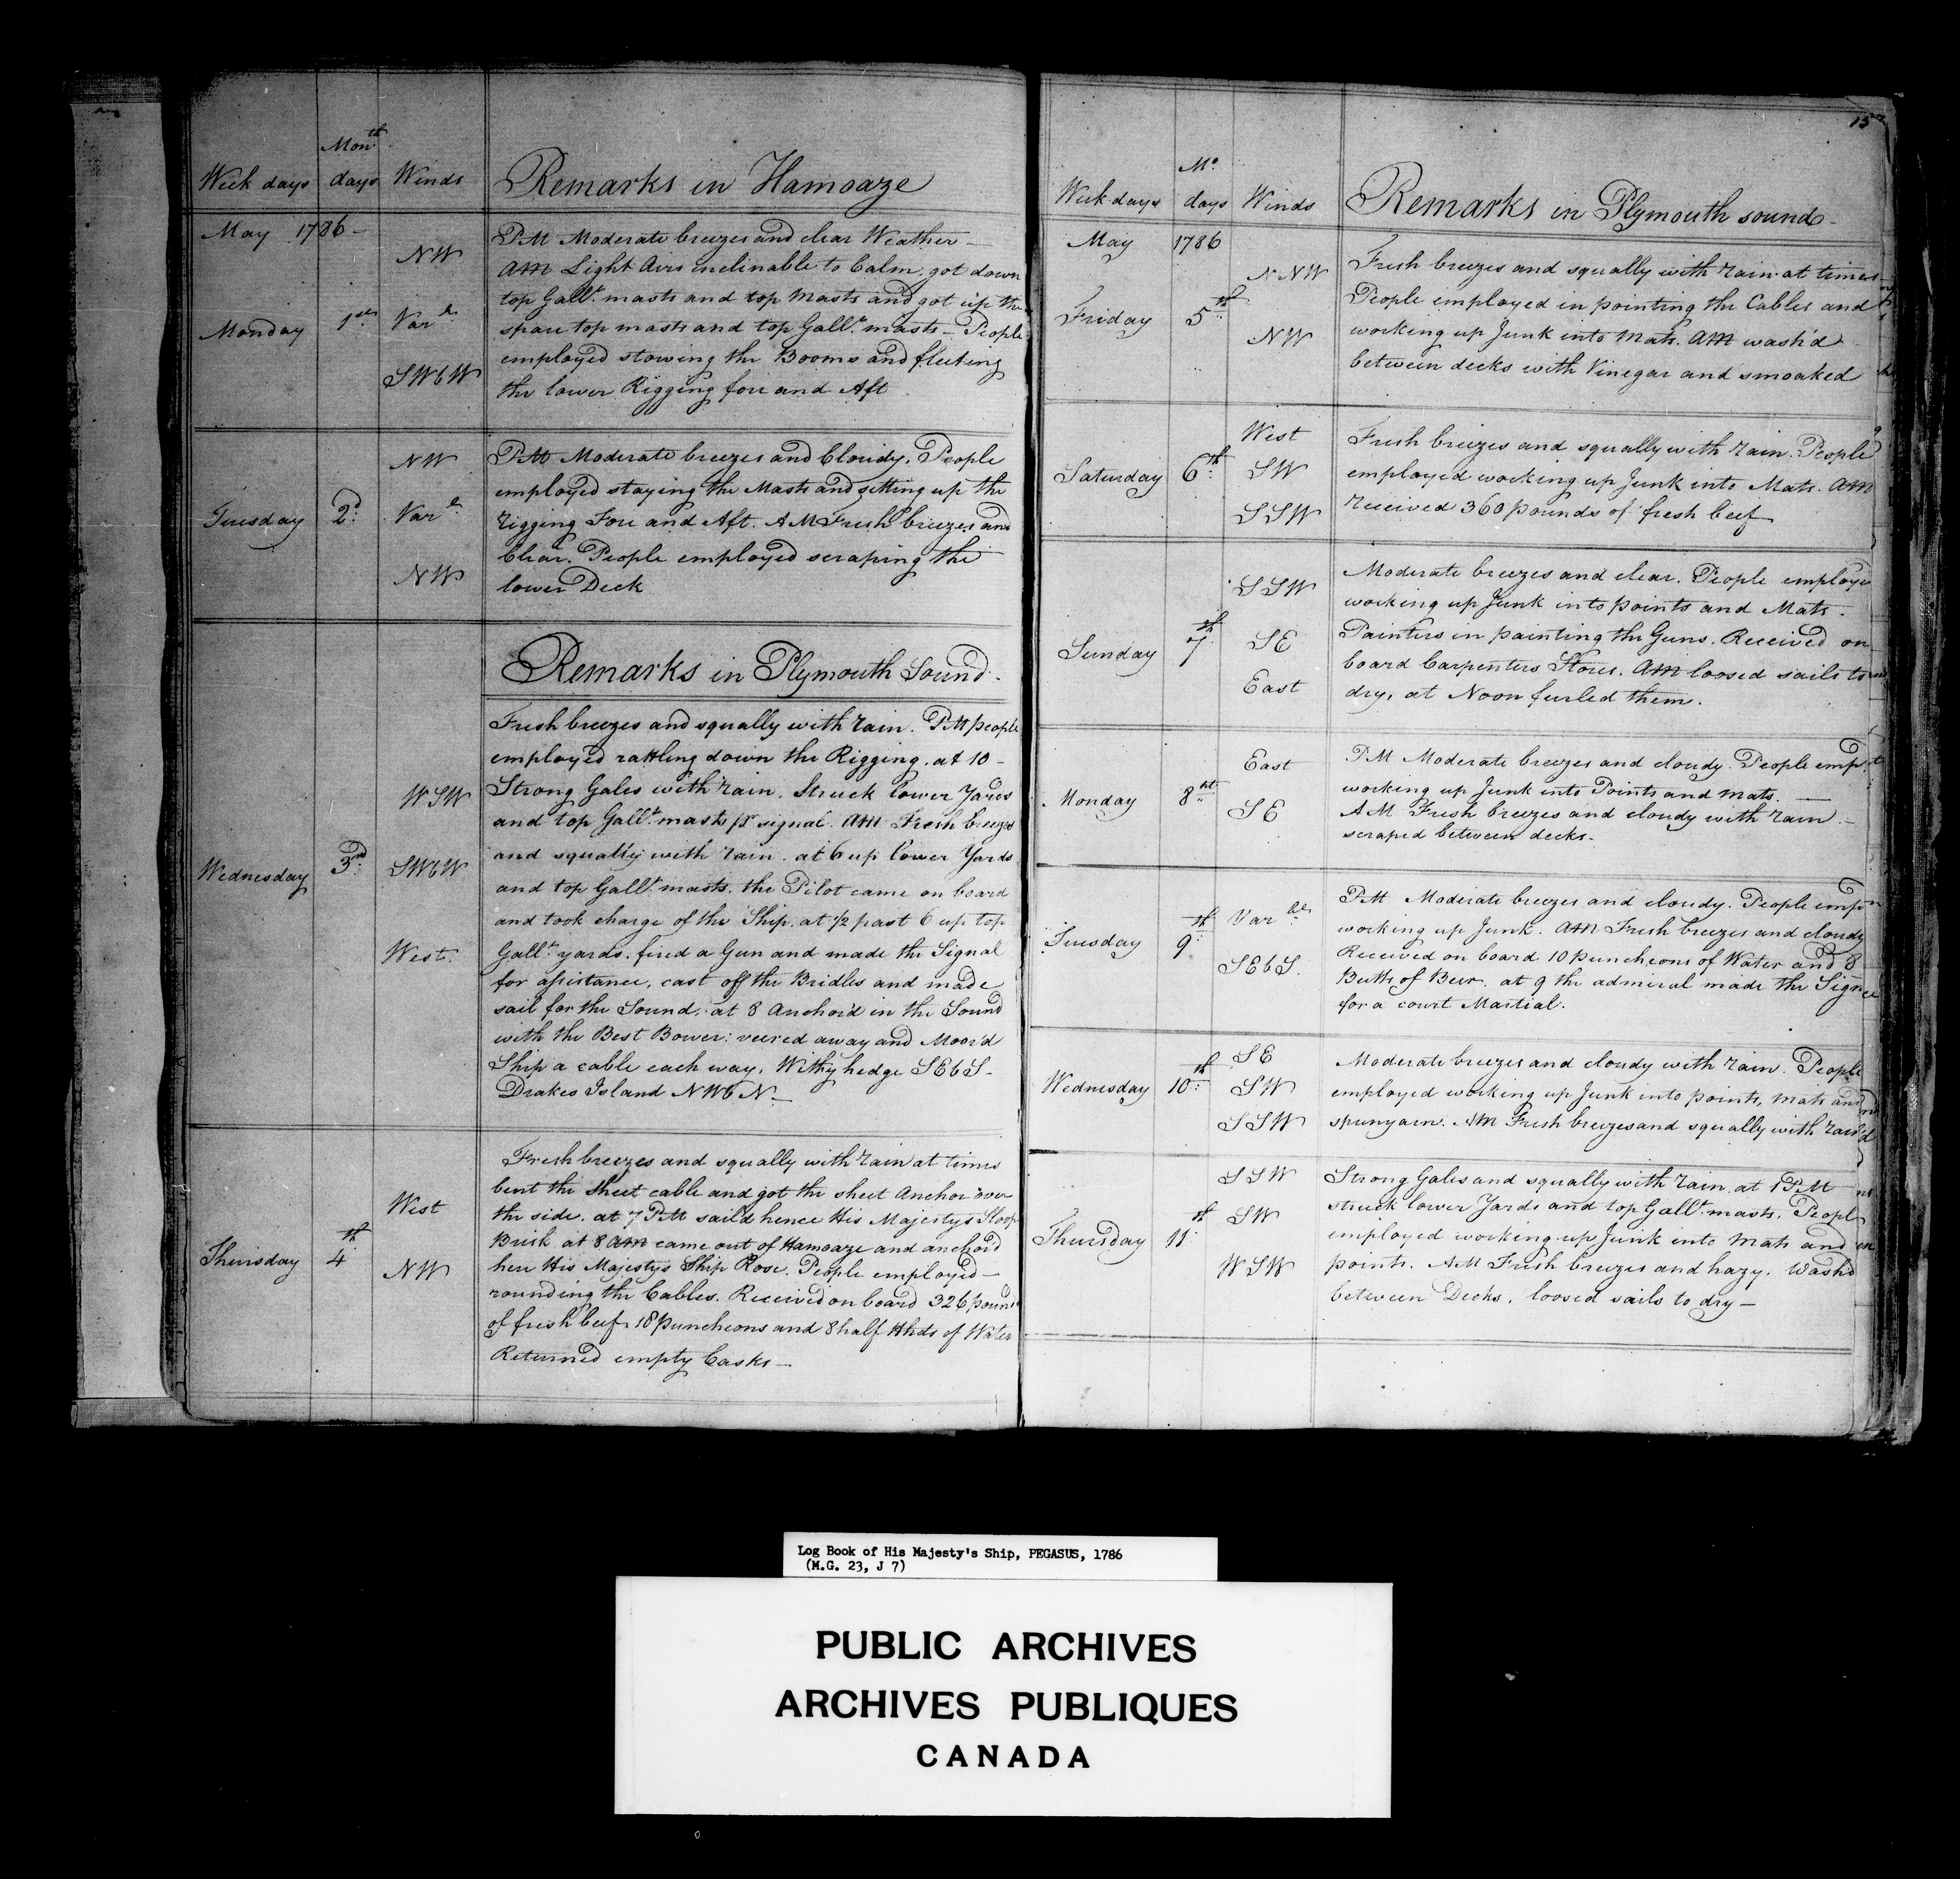 Week days Mon.th days Winds Remarks in Hamoaze
May 1786 -
Monday 1st
NW
Var.le
SWbW
PM Moderate breezes and clear Weather -
AM Light Airs enclinable to Calm. got down
top Gall.t masts and top Masts and got up the
spare top masts and top Gall.t masts - People
employed stowing the Booms and fleeting
the lower Rigging fore and Aft
Tuesday 2d
NW
Var.le
NW
PM Moderate breezes and Cloudy. People
employed staying the Masts and setting up the
rigging Fore and Aft. AM Fresh breezes and
Clear. People employed scraping the
lower Deck
Remarks in Plymouth Sound -
Wednesday 3rd
WSW
SWbW
West.
Fresh breezes and squally with rain. PM people
employed rattling down the Rigging. at 10 -
Strong Gales with rain. Struck lower Yards
and top Gall.t masts pr signal. AM Fresh breezes
and squally with rain. at 6 up lower Yards
and top Gall.t masts. the Pilot came on board
and took charge of the Ship. at 1/2 past 6 up top
Gall.t yards. fired a Gun and made the Signal
for assistance, cast off the Bridles and made
sail for the Sound. at 8 Anchor'd in the Sound
with the Best Bower: veered away and Moor'd
Ship a cable each way. Withy hedge SEbS -
Drakes Island NWbN -
Thursday 4th
West
NW
Fresh breezes and squally with rain at times
bent the sheet cable and got the sheet Anchor over
the side. at 7 PM sail'd hence His Majesty's Sloop
Brisk at 8 AM came out of Hamoaze and anchord
here His Majestys Ship Rose. People employed -
rounding the Cables. Received on board 326 pounds
of fresh beef 18 puncheons and 8 half Hhds of Water
Returned empty Casks -
Week days Mo. days Winds Remarks in Plymouth sound -
May 1786
Friday 5th
NNW
NW
Fresh breezes and squally with rain at times
People employed in pointing the Cables and
working up Junk into Mats. AM wash'd
between decks with Vinegar and smoaked
Saturday 6th
West
SW
SSW
Fresh breezes and squally with rain. People
employed working up Junk into Mats. AM
received 360 pounds of fresh beef
Sunday 7th
SSW
SE
East
Moderate breezes and clear. People employ
working up Junk into points and Mats.
Painters in painting the Guns. Received on
board Carpenters Stores. AM loosed sails to
dry, at Noon furled them.
Monday 8th
East
SE
PM Moderate breezes and cloudy. People emp
working up Junk into Points and mats. -
AM Fresh breezes and cloudy with rain -
scraped between decks.
Tuesday 9th
Var.ble
SEbS.
PM Moderate breezes and cloudy. People emp
working up Junk. AM Fresh breezes and cloudy
Received on board 10 puncheons of Water and 8
Butts of Beer. at 9 the admiral made the Signal
for a court Martial.
Wednesday 10th
SE
SW
SSW
Moderate breezes and cloudy with rain. People
employed working up Junk into points, mats and
spunyarn. AM Fresh breezes and squally with rain
Thursday 11th
SSW
SW
WSW
Strong Gales and squally with rain at 1 PM
struck lower Yards and top Gall.t masts. People
employed working up Junk into mats and
points. AM Fresh breezes and hazy. Wash'd
between Decks. loosed sails to dry -
Log Book of His Majesty's Ship, PEGASUS, 1786
(M.G. 23, J 7)
PUBLIC ARCHIVES
ARCHIVES PUBLIQUES
CANADA